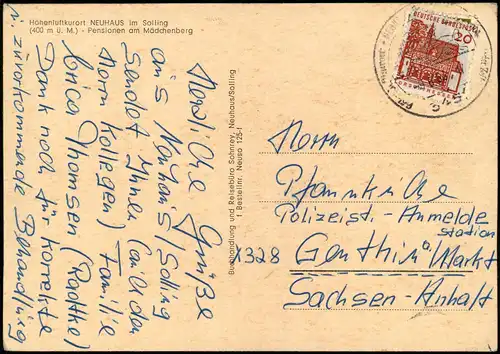 Höhenluftkurort NEUHAUS im Solling
(400 m ü. M.) - Pensionen am Mädchenberg
Herzliche Grüße
aus Neuhaus/Solling
sendet Ihnen (und den
Herrn Kollegen) Familie
Erica Thomsen (Radtke)
Dank noch für korrekte
u. zuvorkommende Behandlung
Buchhandlung und Reisebüro Sohnrey, Neuhaus/Solling
1 Bestellnr. Neuso 125-I
DEUTSCHE BUNDESPOST
20
Herrn
Pfannkuche
Polizeist.-Anmelde
station
X328 Genthin a/Markt
Sachsen-Anhalt